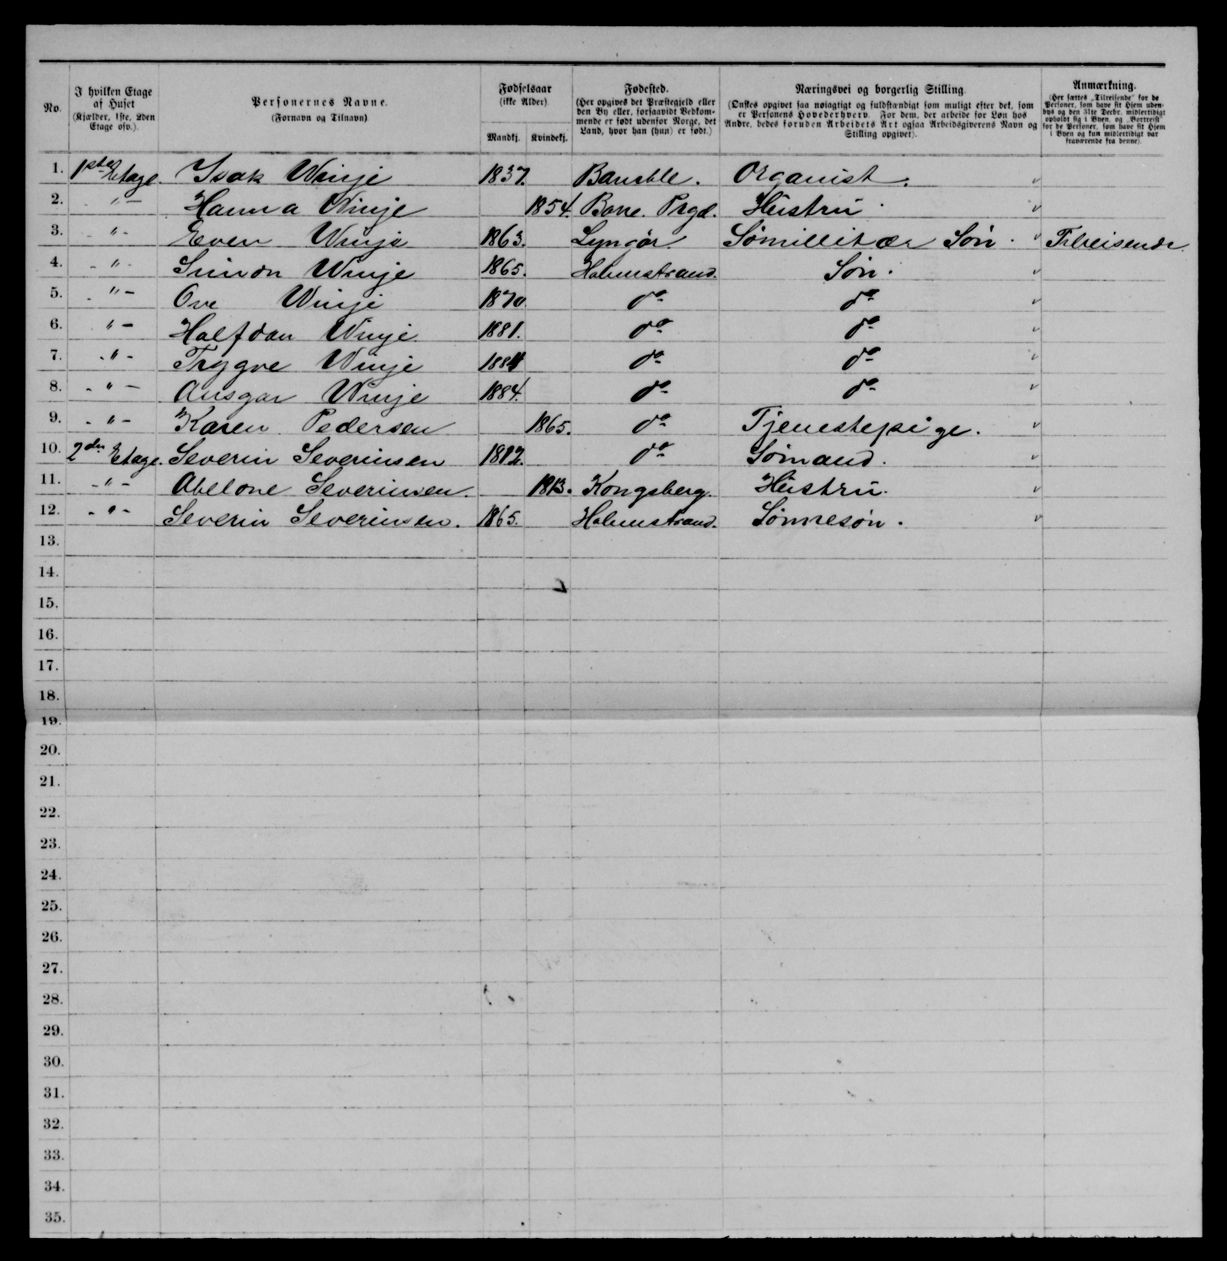 No.
I hvilken Etage af Huset (Kjælder, 1ste, 2den Etage osv.).
Personernes Navne. (Fornavn og Tilnavn)
Fødselsaar (ikke Alder)
Mandkj. Kvindekj.
Fødested. (Her opgives det Præstegjeld eller den By eller, forsaavidt Vedkommende er født udenfor Norge, det Land, hvor han (hun) er født.)
Næringsvei og borgerlig Stilling. (Ønskes opgivet saa nøiagtigt og fuldstændigt som muligt efter det, som er Personens Hovederhverv. For dem, der arbeide for Løn hos Andre, bedes foruden Arbeidets Art ogsaa Arbeidsgiverens Navn og Stilling opgivet).
Anmærkning. (Her sættes „Tilreisende" for de Personer, som have sit Hjem udenbys og den 31te Decbr. midlertidigt opholdt sig i Byen, og „Bortreist" for de Personer, som have sit Hjem i Byen og kun midlertidigt var fraværende fra denne).
1. 1ste Etage. Isak Winje 1837. Bamble. Organist.
2. -"- Hanna Winje 1854. Borre Prgd. Hustru.
3. -"- Even Winje 1863. Lyngør. Sømillitær Søn. Tilreisende
4. -"- Simon Winje 1865. Holmestrand. Søn.
5. -"- Ove Winje 1870 do do
6. -"- Halfdan Winje 1881. do do
7. -"- Trygve Winje 1884 do do
8. -"- Ansgar Winje 1884. do do
9. -"- Karen Pedersen 1865. do Tjenestepige.
10. 2den Etage. Severin Severinsen 1812. do Sømand.
11. -"- Abelone Severinsen. 1813. Kongsberg. Hustru.
12. -"- Severin Severinsen. 1865. Holmestrand. Sønnesøn.
13.
14.
15.
16.
17.
18.
19.
20.
21.
22.
23.
24.
25.
26.
27.
28.
29.
30.
31.
32.
33.
34.
35.